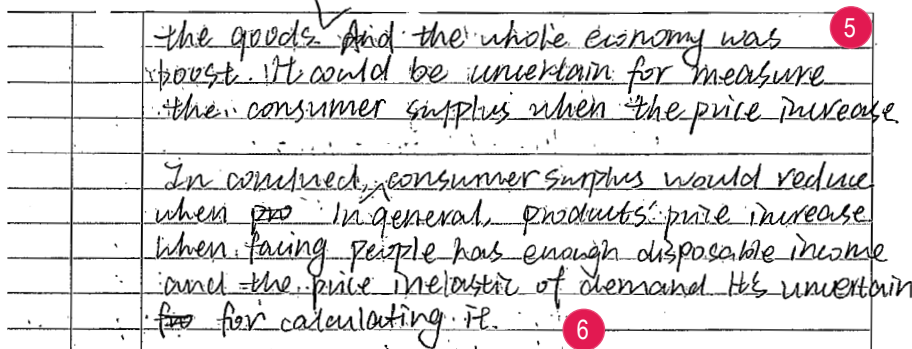 the goods. And the whole economy was 5
boost. It could be uncertain for measure
the consumer surplus when the price increase
In conclued, consumer surplus would reduce
when pro In general, products' price increase
when facing people has enough disposable income
and the price inelastic of demand It's uncertain
fro for calculating it. 6